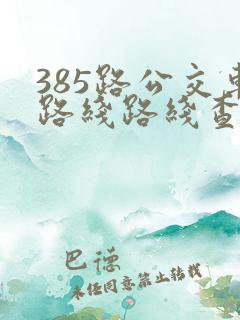 385路公交车
路线路线查
巴德
未经同意禁止转载